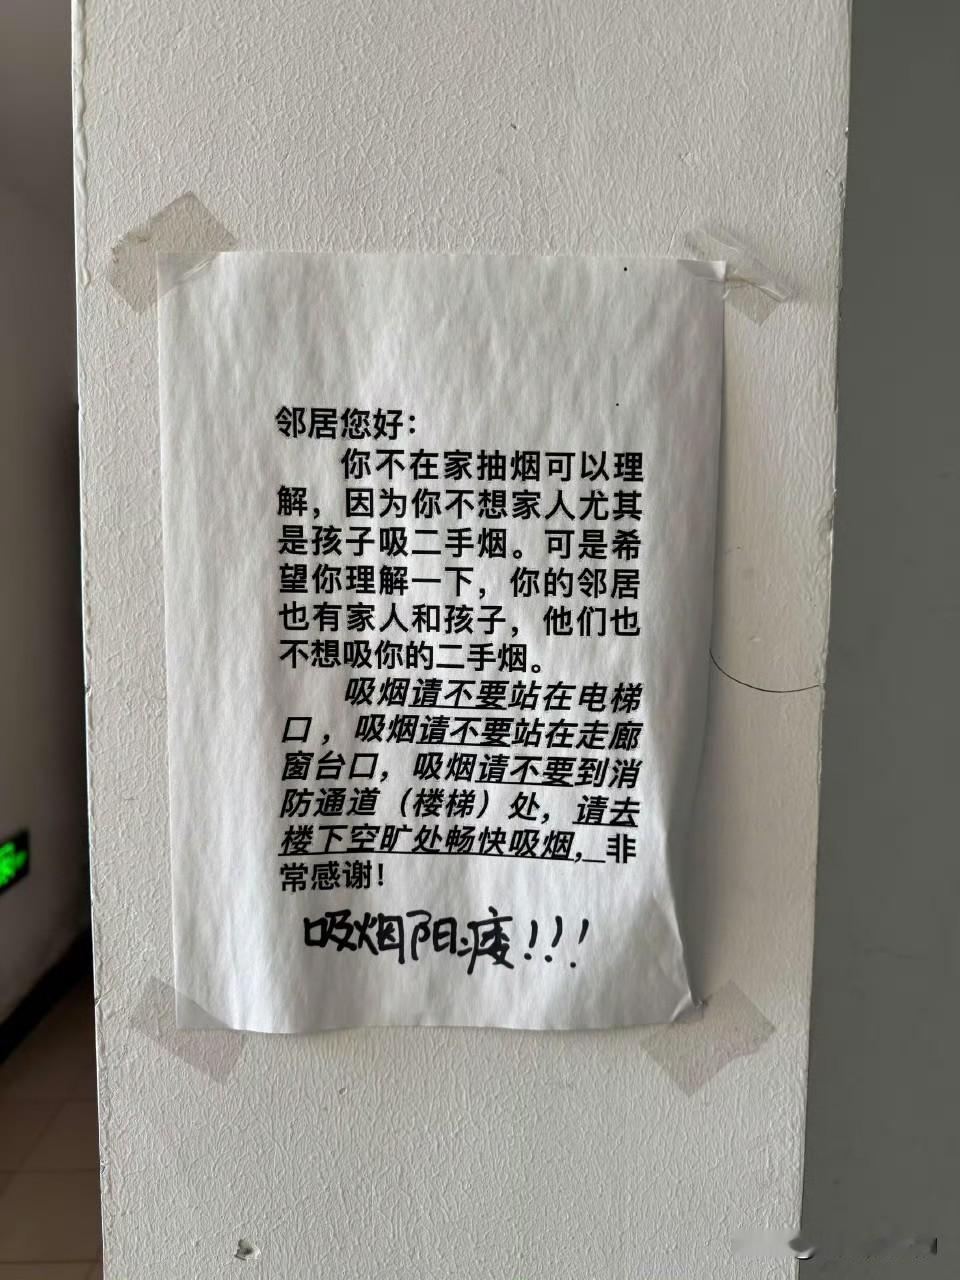 邻居您好：
你不在家抽烟可以理
解，因为你不想家人尤其
是孩子吸二手烟。可是希
望你理解一下，你的邻居
也有家人和孩子，他们也
不想吸你的二手烟。
吸烟请不要站在电梯
口，吸烟请不要站在走廊
窗台口，吸烟请不要到消
防通道（楼梯）处，请去
楼下空旷处畅快吸烟，非
常感谢！
吸烟阳痿！！！